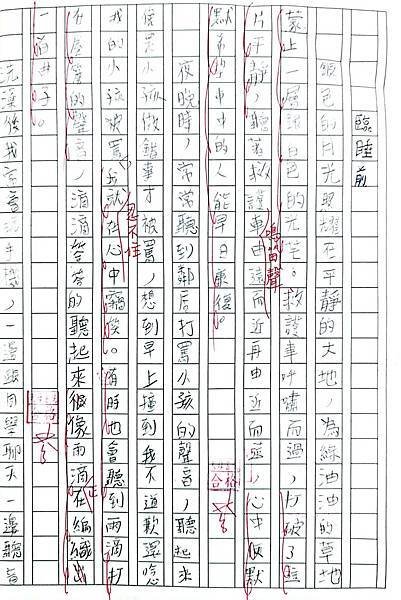 臨睡前
銀色的月光照耀在平靜的大地，為綠油油的草地
蒙上一層銀白色的光芒。救護車呼嘯而過，打破了這
片寧靜，聽著救護車由遠而近再由近而遠，心中默
鳴笛聲
默希望車中的人能早日康復。
合格
夜晚時，常常聽到鄰居打罵小孩的聲音，聽起來
像是小孩做錯事才被罵，想到早上撞到我不道歉還唸
我的小孩被罵，我就在心中竊笑。有時也會聽到雨滴打
忍不住
在屋簷的聲音，滴滴答答的聽起來很像雨滴在編織出
正
一首曲子。
合格
洗澡後我常玩手機，一邊跟同學聊天一邊聽音